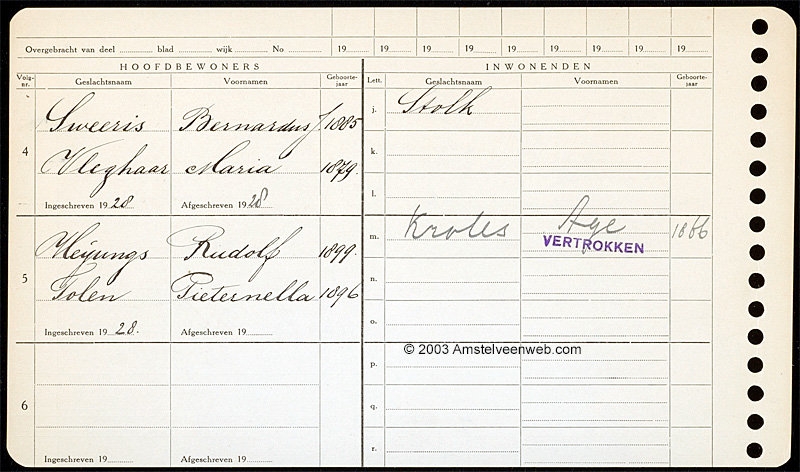 Overgebracht van deel blad wijk No 19 19 19 19 19 19 19 19
HOOFDBEWONERS INWONENDEN
Volg-nr. Geslachtsnaam Voornamen Geboorte-jaar Lett. Geslachtsnaam Voornamen Geboorte-jaar
4 Sweeris Bernardus J. 1885 j. Stolk
k.
Vleghaar Maria 1879.
l.
Ingeschreven 1928 Afgeschreven 1928
m. Kroles Age 1866
VERTROKKEN
5 Heijungs Rudolf 1899.
n.
Tolen Pieternella 1896
o.
Ingeschreven 1928. Afgeschreven 19
© 2003 Amstelveenweb.com
p.
6
q.
r.
Ingeschreven 19 Afgeschreven 19